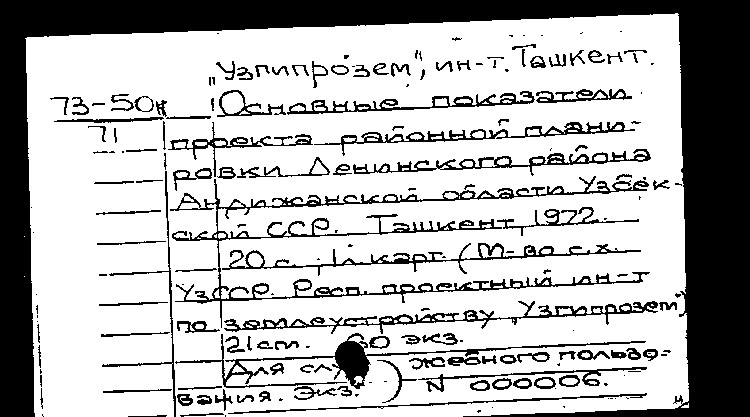 „Узгипрозем", ин-т. Ташкент.
73-50к Основные показатели
71 проекта районной плани-
ровки Ленинского района
Андижанской области Узбек-
ской ССР. Ташкент, 1972.
20 с., 1л карт. (М-во с.х.
УзССР. Респ. проектный ин-т
по землеустройству „Узгипрозем")
21 см. 60 экз.
Для служебного пользо-
вания. Экз. N 000006.